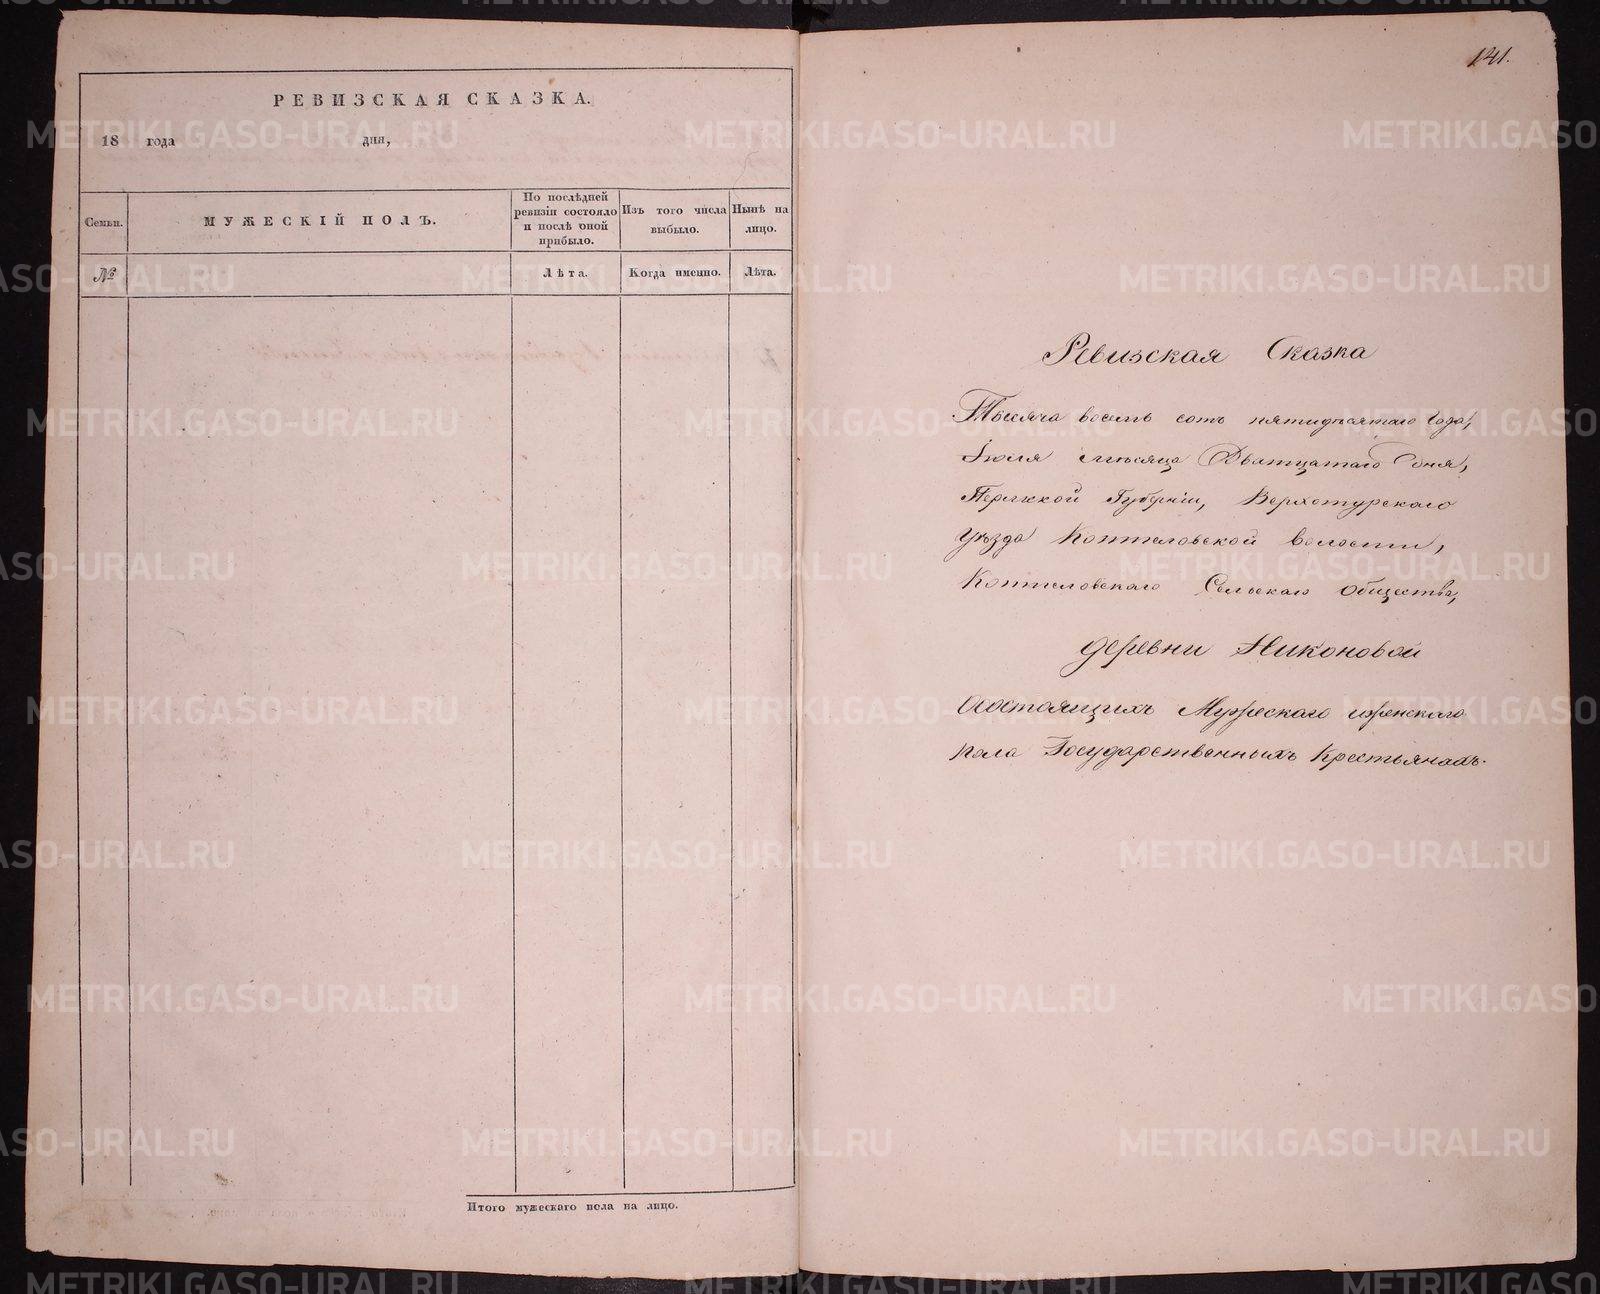 РЕВИЗСКАЯ СКАЗКА.
18 года дня,
Семьи.
МУЖЕСКІЙ ПОЛЪ.
По послѣдней ревизіи состояло и послѣ оной прибыло.
Изъ того числа выбыло.
Нынѣ на лицо.
№
Лѣта.
Когда именно.
Лѣта.
Итого мужескаго пола на лицо.
141.
Ревизская Сказка
Тысяча восемь сотъ пятидесятаго Года,
Іюля мѣсяца Дватцатаго дня,
Пермской Губерніи, Верхотурскаго
Уѣзда Коптеловской волости,
Коптеловскаго Сельскаго Общества,
деревни Никоновой
Состоящихъ Мужескаго и женскаго
пола Государственныхъ Крестьянахъ.
METRIKI.GASO-URAL.RU